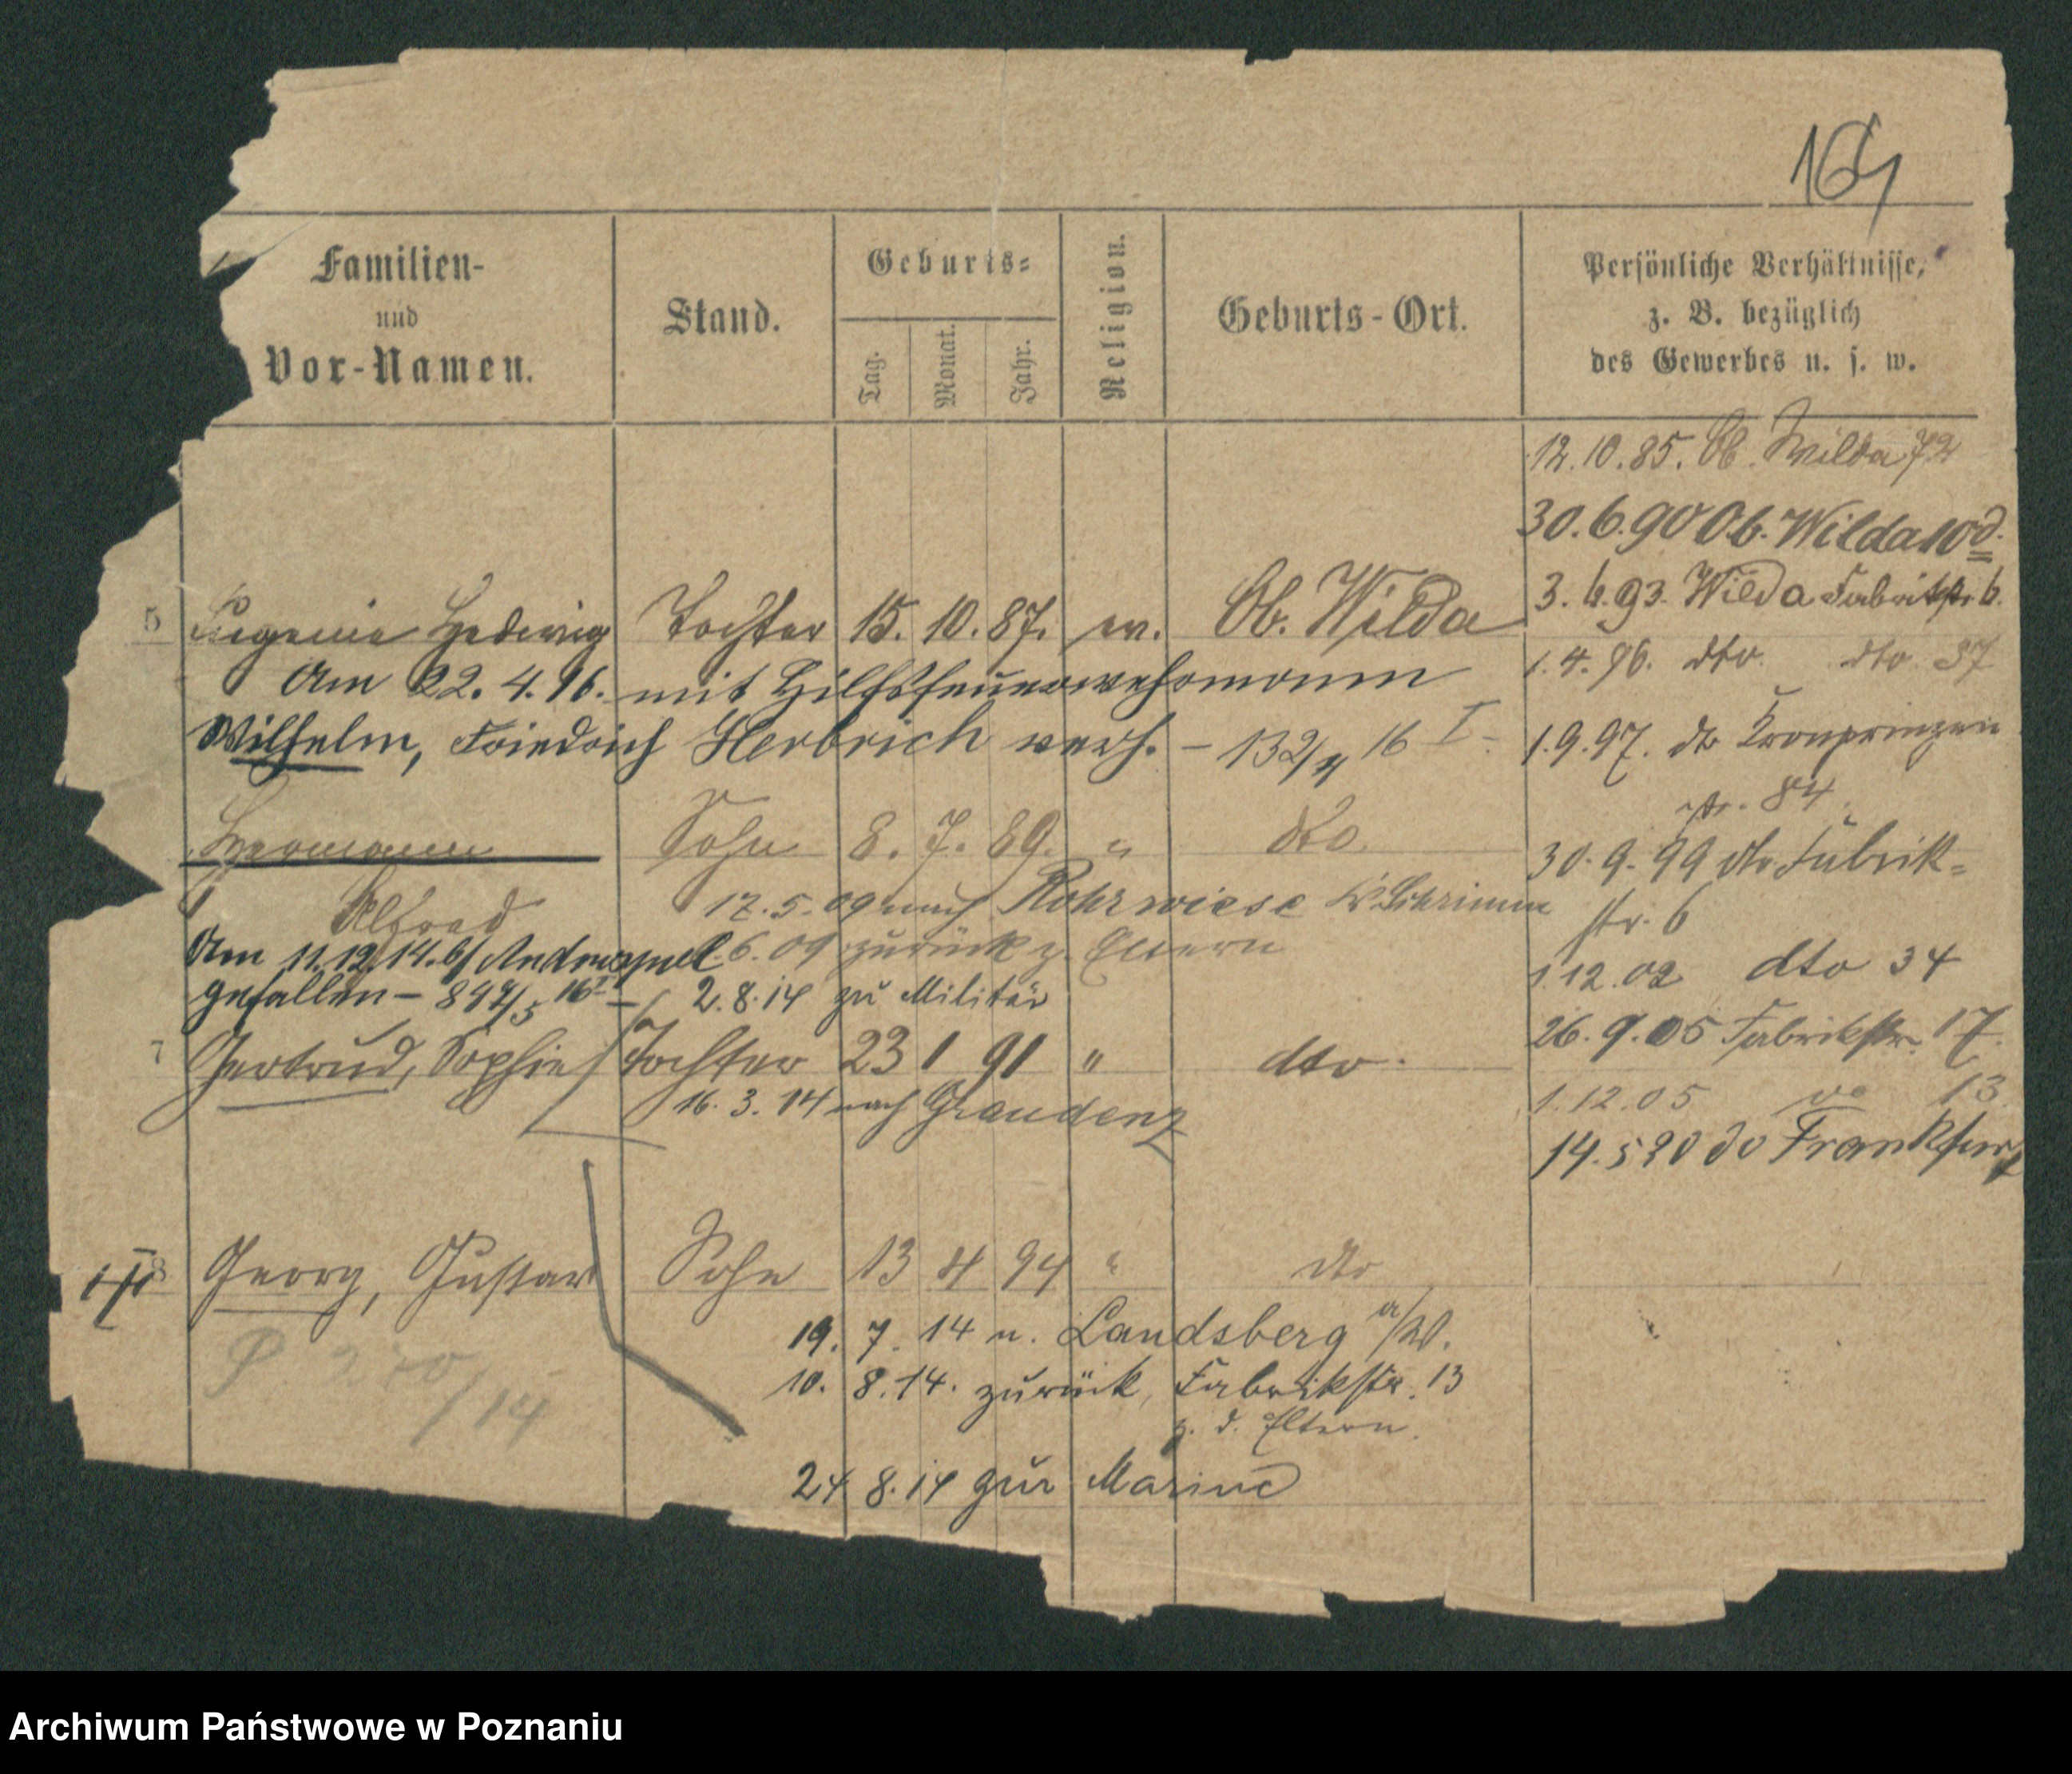 164
Familien-
und
Vor-Namen.
Stand.
Geburts-
Tag.
Monat.
Jahr.
Religion.
Geburts-Ort.
Persönliche Verhältnisse,
z. B. bezüglich
des Gewerbes u. s. w.
12.10.85. Ob. Wilda 72
30.6.90 Ob. Wilda 10d.
3.6.93. Wilda Fabrikstr 6.
1.4.96. dto. dto 37
1.9.97. do Kronprinzen
str. 84.
30.9.99 dto Fabrik-
str. 6
1.12.02 dto 34
26.9.05 Fabrikstr. 17.
1.12.05 do 13
14.5 20 do Frankfurt
5 Eugenie Hedwig Tochter 15. 10. 87. ev. Ob. Wilda
Am 22.4.16. mit Hilfsfeuerwehrmann
Wilhelm, Friedrich Herbrich verh. – 132/4 16 I –
Hermann Sohn 8. 7. 89. " dto.
Alfred 17.5.09 nach Rohrwiese K. Schrimm
6.09 zurück z. Eltern
Am 11.12.14. b/
gefallen – 2.8.14 zu Militär
7 Gertrud, Sophie Tochter 23 1 91 " dto.
16.3.14 nach Graudenz
8 Georg, Gustav Sohn 13 4 94 " dto
19. 7. 14 n. Landsberg a/W.
P 270/14
10. 8. 14. zurück, Fabrikstr. 13
z. d. Eltern.
24 8.14 zur Marine
Archiwum Państwowe w Poznaniu